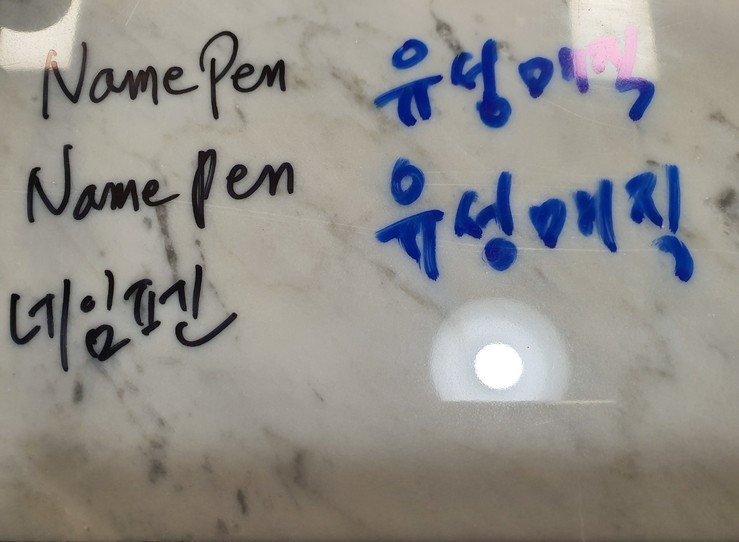 Name Pen
Name Pen
네임펜
유성매직
유성매직